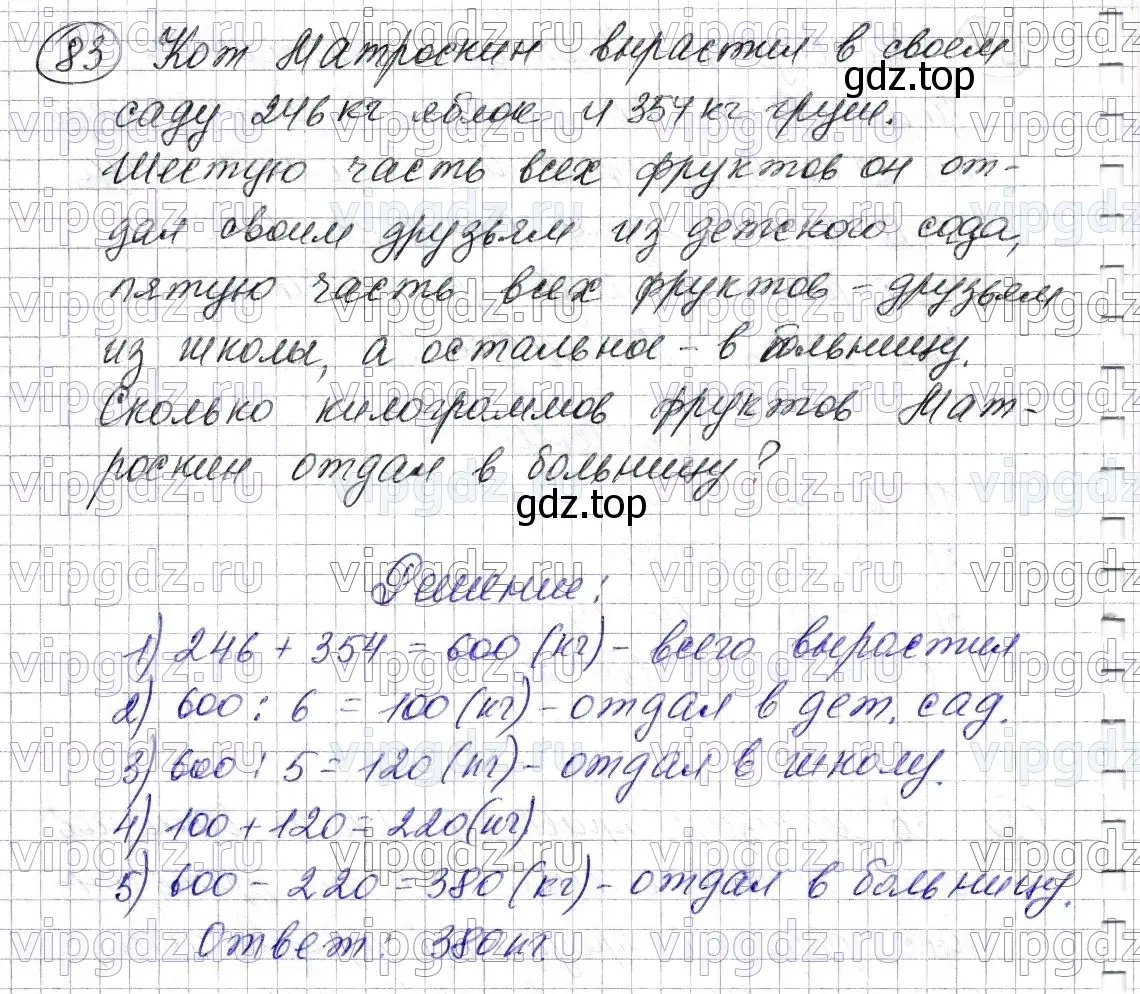 83 Кот Матроскин вырастил в своем
gdz.top
саду 246 кг яблок и 354 кг груш.
Шестую часть всех фруктов он от-
дал своим друзьям из детского сада,
пятую часть всех фруктов - друзьям
из школы, а остальное - в больницу.
Сколько килограммов фруктов Мат-
роскин отдал в больницу?
gdz.top
Решение:
1) 246 + 354 = 600 (кг) - всего вырастил
2) 600 : 6 = 100 (кг) - отдал в дет. сад.
3) 600 : 5 = 120 (кг) - отдал в школу.
4) 100 + 120 = 220 (кг)
5) 600 - 220 = 380 (кг) - отдал в больницу.
Ответ: 380 кг
vipgdz.ru